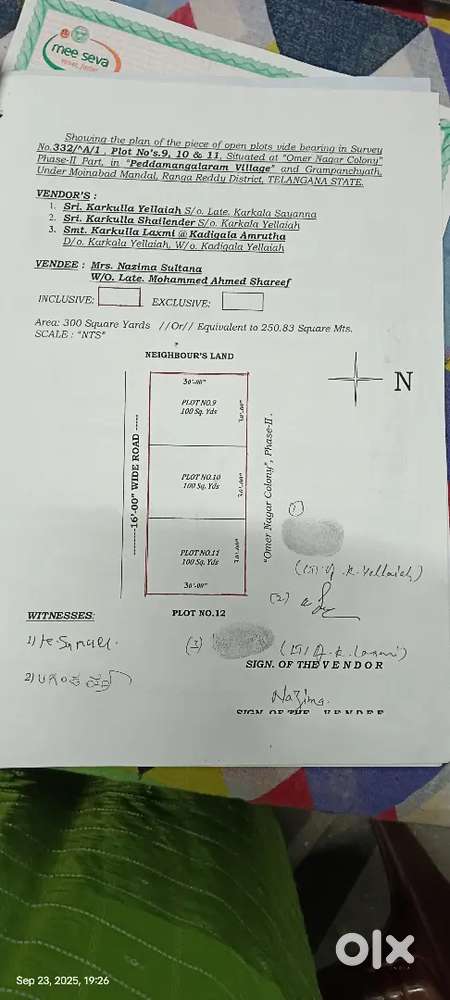 mee seva
Showing the plan of the piece of open plots vide bearing in Survey
No.332/^A/1, Plot No's.9, 10 & 11, Situated at "Omer Nagar Colony"
Phase-II Part, in "Peddamangalaram Village" and Grampanchyath,
Under Moinabad Mandal, Ranga Reddy District, TELANGANA STATE.
VENDOR'S :
1. Sri. Karkulla Yellaiah S/o. Late, Karkala Sayanna
2. Sri. Karkulla Shailender S/o. Karkala Yellaiah
3. Smt. Karkulla Laxmi @ Kadigala Amrutha
D/o. Karkala Yellaiah, W/o. Kadigala Yellaiah
VENDEE : Mrs. Nazima Sultana
W/O. Late. Mohammed Ahmed Shareef
INCLUSIVE: EXCLUSIVE:
Area: 300 Square Yards //Or// Equivalent to 250.83 Square Mts.
SCALE : "NTS"
NEIGHBOUR'S LAND
N
30'-00"
PLOT NO.9
100 Sq. Yds
30'-00"
-------16'-00" WIDE ROAD -----
PLOT NO.10
100 Sq. Yds
30'-00"
"Omer Nagar Colony", Phase-II .
PLOT NO.11
100 Sq. Yds
30'-00"
30'-00"
(1)
K. Yellaiah)
(2)
WITNESSES:
PLOT NO.12
1)
(3)
SIGN. OF THE VENDOR
2)
Nazima.
SIGN. OF THE VENDEE
Sep 23, 2025, 19:26
olx
INDIA